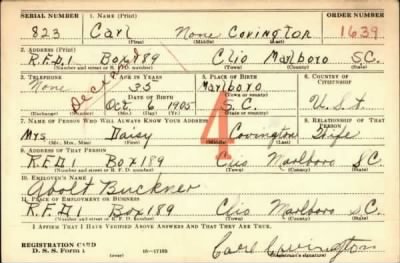 SERIAL NUMBER 1. NAME (Print) ORDER NUMBER
823 Carl None Covington 1639
(First) (Middle) (Last)
2. ADDRESS (Print)
R.F.D.1 Box 189 Clio Marlboro S.C.
(Number and street or R. F. D. number) (Town) (County) (State)
3. TELEPHONE 4. AGE IN YEARS 5. PLACE OF BIRTH 6. COUNTRY OF CITIZENSHIP
None 35 Marlboro
DATE OF BIRTH (Town or county)
Oct. 6 1905 S.C. U.S.A.
(Exchange) (Number) (Mo.) (Day) (Yr.) (State or country)
7. NAME OF PERSON WHO WILL ALWAYS KNOW YOUR ADDRESS 8. RELATIONSHIP OF THAT PERSON
Mrs Daisy Covington Wife
(Mr., Mrs., Miss) (First) (Middle) (Last)
9. ADDRESS OF THAT PERSON
R.F.D.1 Box 189 Clio Marlboro S.C.
(Number and street or R. F. D. number) (Town) (County) (State)
10. EMPLOYER'S NAME
Abolt Buckner
11. PLACE OF EMPLOYMENT OR BUSINESS
R.F.D.1 Box 189 Clio Marlboro S.C.
(Number and street or R. F. D. number) (Town) (County) (State)
I AFFIRM THAT I HAVE VERIFIED ABOVE ANSWERS AND THAT THEY ARE TRUE.
REGISTRATION CARD
D. S. S. Form 1 (over) 16—17105 Carl Covington
(Registrant's signature)
4